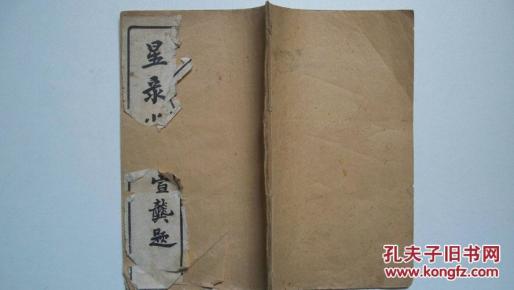 星录小
宣龚题
孔夫子旧书网
www.kongfz.com